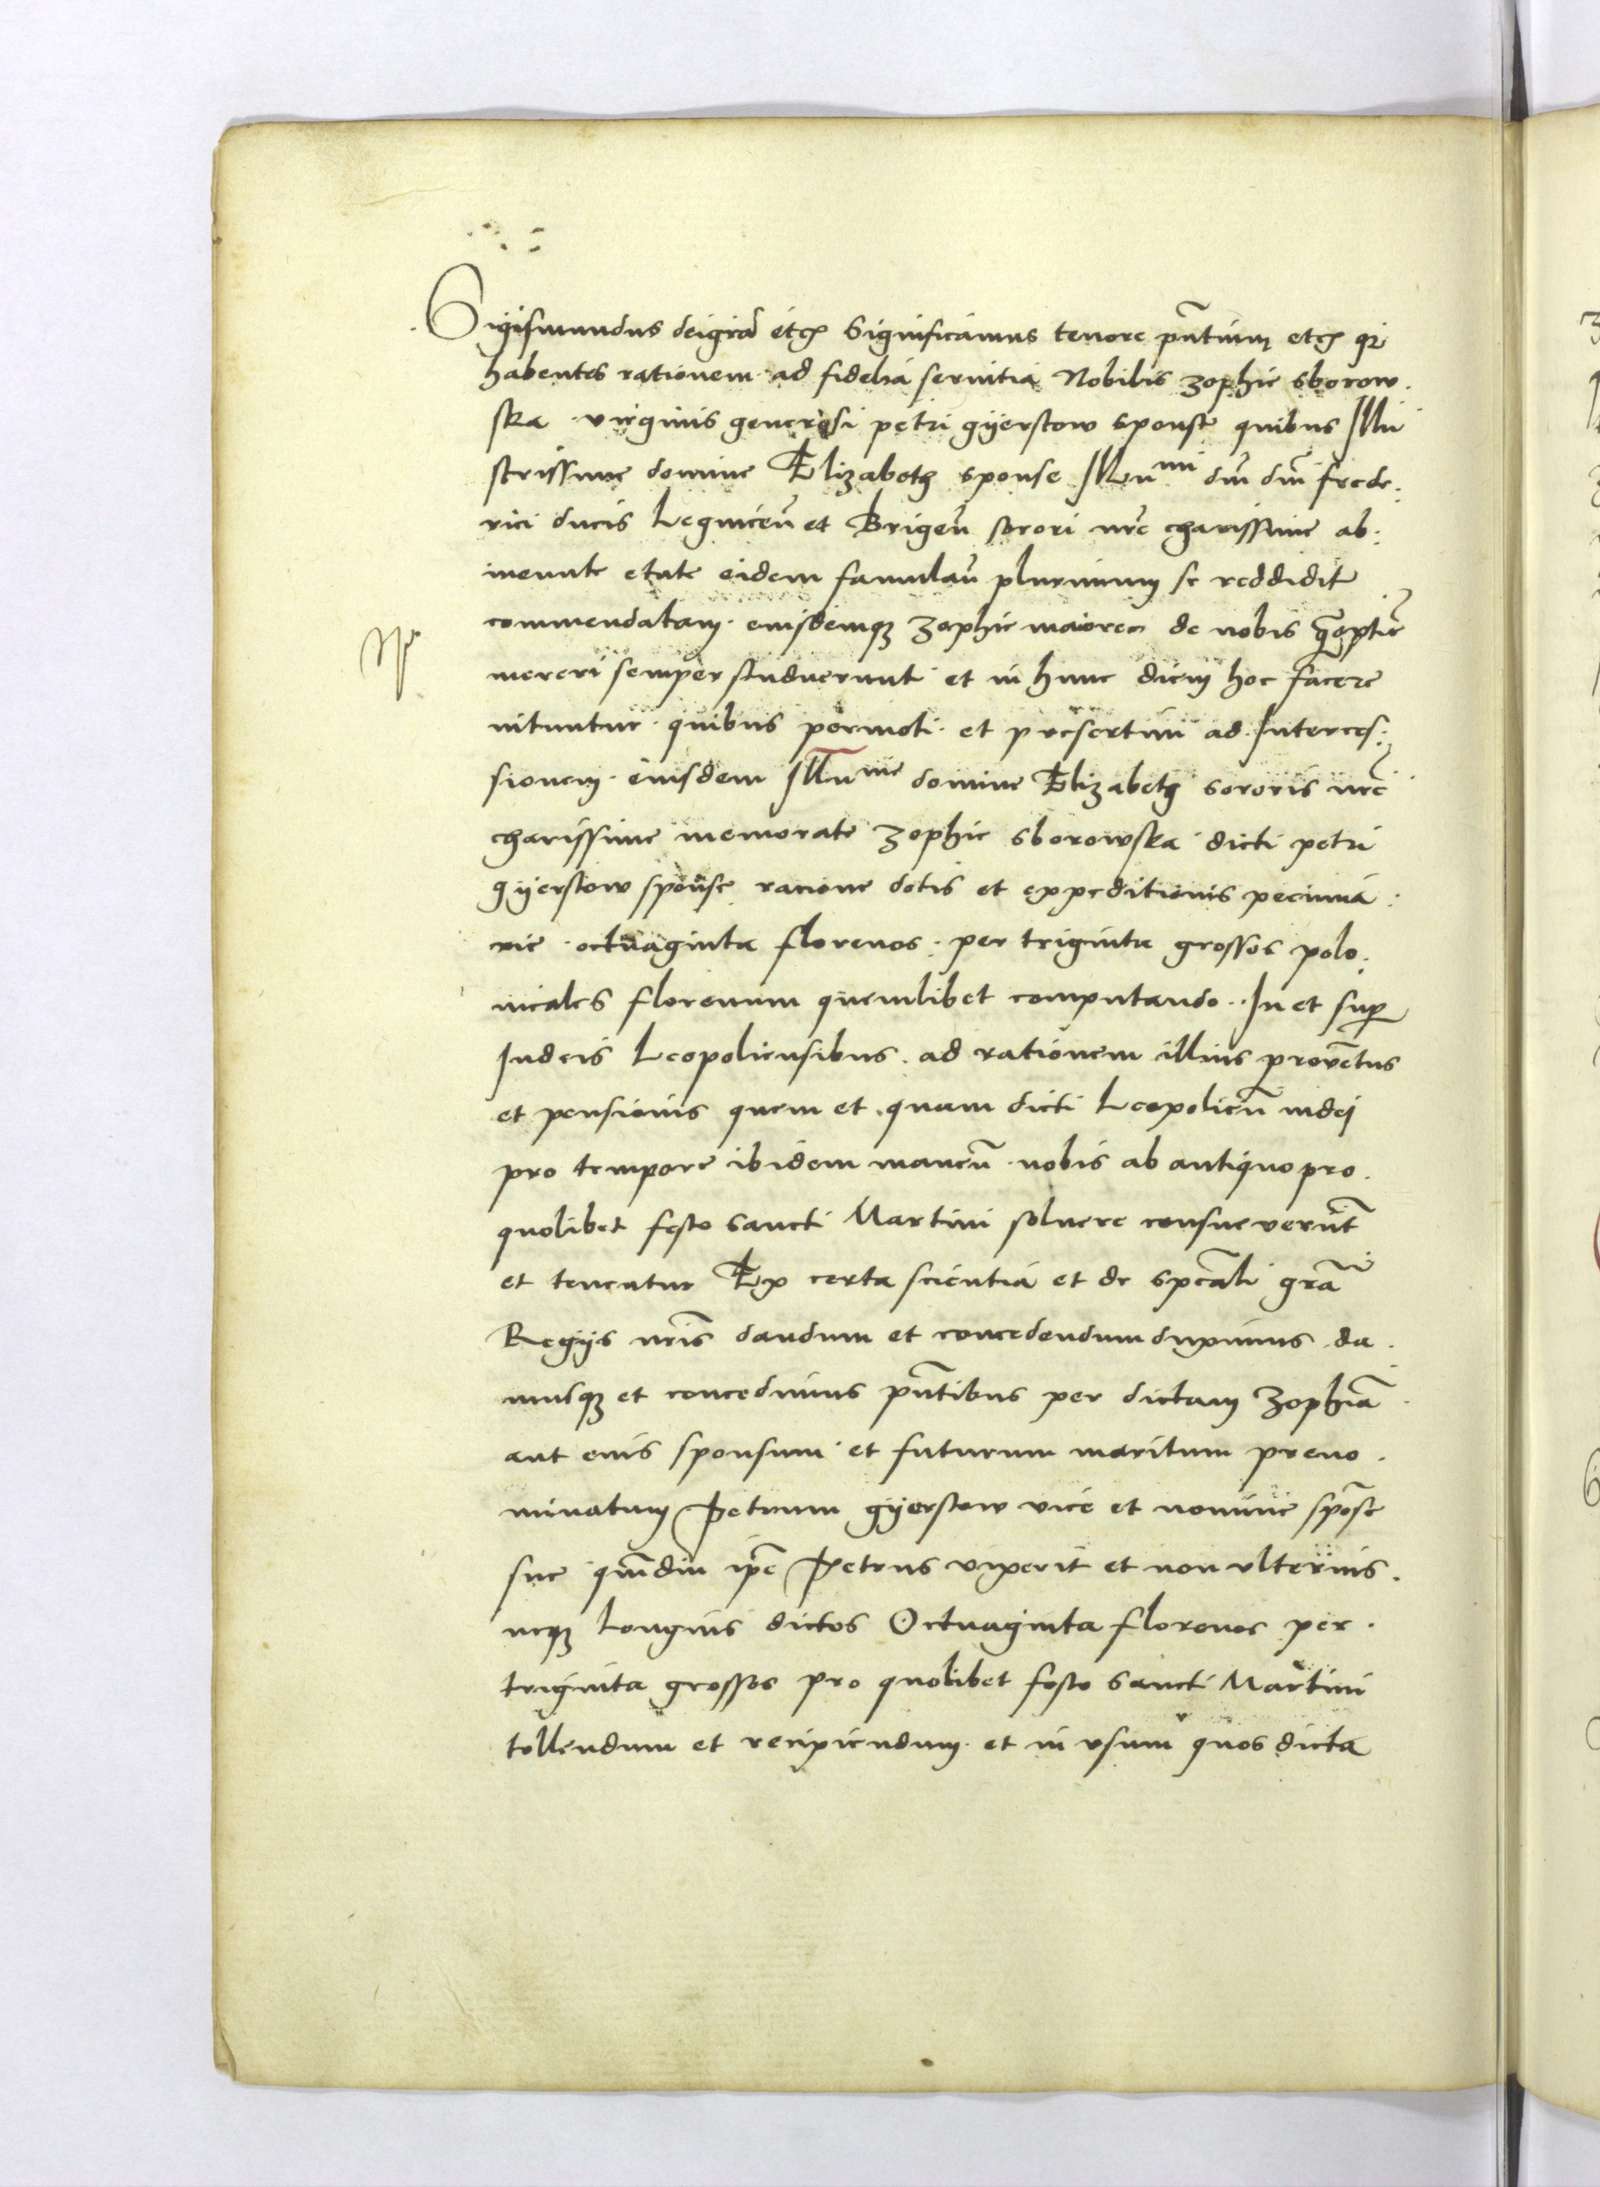 Sigismundus dei gra etc Significamus tenore pñtium etc q
habentes rationem ad fidelia servitia Nobilis zophie sborow
ska virginis generosi petri gyerstow sponse quibus Illu
strissime domine Elizabeth sponse Illumi dni dni frede
rici ducis Legnicen̄ et Brigen̄ sorori nrē charissime ab
ineunte etate eidem famulan̄ plurimum se reddidit
commendatam eiusdemq3 zophie maiores de nobis
mereri semper studuerunt et in hunc diem hoc facere
nituntur quibus permoti et presertim ad Interces
sionem eiusdem Illume domine Elizabeth sororis nrē
charissime memorate zophie sborowska dicti petri
gyerstow sponse racione dotis et expeditionis pecunia
rie octuaginta florenos per triginta grossos polo
nicales florenum quemlibet computando In et sup
Iudeis Leopoliensibus ad rationem illius provētus
et pensionis quem et quam dicti Leopolien̄ iudej
pro tempore ibidem manen̄ nobis ab antiquo pro
quolibet festo sancti Martini soluere consueverūt
et tenentur Ex certa scientia et de spēali grā
Regijs nrīs dandum et concedendum duximus da
musq3 et concedimus pñtibus per dictam zophiā
aut eius sponsum et futurum maritum preno
minatum Petrum gyerstow vice et nomine spōse
sue qmdiu ipē Petrus vixerit et non vlterius
neq3 Longius dictos Octuaginta florenos per
triginta grossos pro quolibet festo sancti Martini
tollendum et recipiendum et in vsum quos dicta